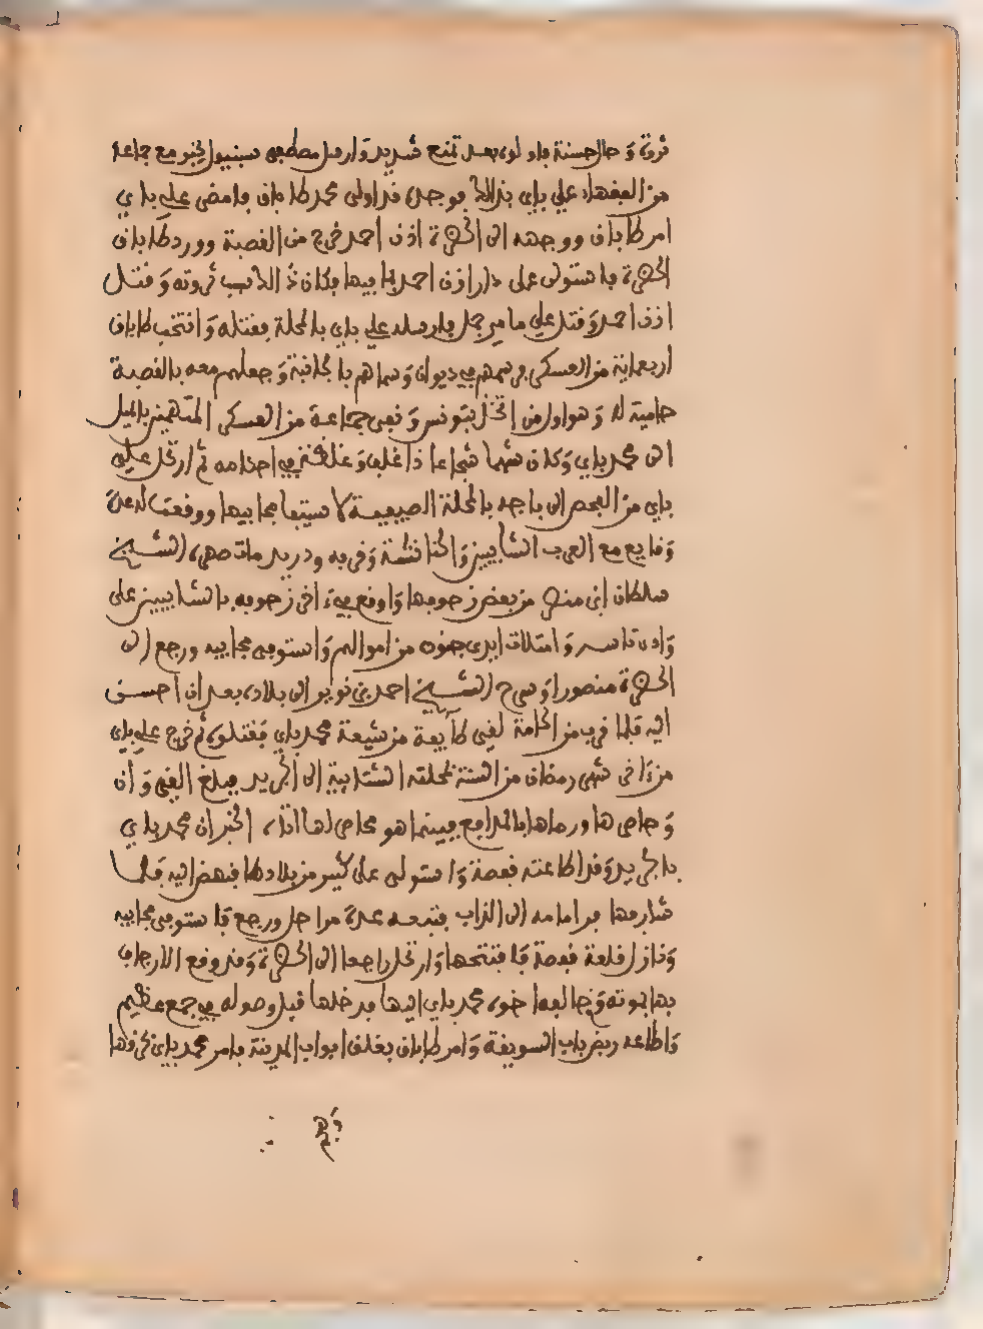 ثروة وحال حسنة فاولوه بعد تمنع شديد وارسل مصطفى سبنيول يخبر مع جماعة
من الفقهاء علي باي بذالك فوجده قد اولى محمد طاباق فامضى علي باي
امر طاباق ووجهه الى الحضرة اذن احمد خرج من القصبة وورد طاباق
الحضرة فاستولى على دار اذن احمد بما فيها فكان ذالك سبب ثروته وقتل
اذن احمد وقتل علي مامي جمل فارسله علي باي بالمحلة فقتله وانتخب طاباق
أربعماية من العسكر فرسمهم في ديوان وسماهم بالحانبة وجعلهم معه بالقصبة
حامية له وهو اول من اتخذ بتونس ونفى جماعة من العسكر المتهمين بالميل
الى محمد باي وكان شهما شجاعا ذا غلب وغلظة في احكامه ثم ارتحل علي
باي من الفحص الى باجه بالمحلة الصيفية لاستيفا مجابيها ووقعت له عدة
وقايع مع العرب الشابيين والحنانشة وفر به ودريد مات صهره الشيخ
سلطان ابن منصر من بعض زحوفها واوقع في اخر زحوفه بالشابيين على
وادي تاسه وامتلات ايدي جنوده من اموالهم واستوفى مجابيه ورجع الى
الحضرة منصورا وسرح الشيخ احمد بن نوير الى بلاده بعد ان احسن
اليه فلما قرب من الحامة لقي طايفة من شيعة محمد باي فقتلوه ثم خرج علي باي
من ءاخر شهر رمضان من السنة لمحلته الشتايية الى الجريد فبلغ القيروان
وحاصرها ورماها بالمدافع فبينما هو محاصر لها اتاه الخبر ان محمد باي
بالجريد وقد اطاعته قفصة واستولى على كثير من بلادها فنهض اليه فلما
شارفها فر امامه الى الزاب فتبعه عدة مراحل ورجع فاستوفى مجابيه
ونازل قلعة قفصة فافتتحها وارتحل راجعا الى الحضرة وقد وقع الارجاف
بها بموته وخالفه اخوه محمد باي اليها فدخلها قبل وصوله في جمع عظيم
واطاعه ربض باب السويقة وامر طاباق بغلق ابواب المدينة فامر محمد باي بحرقها